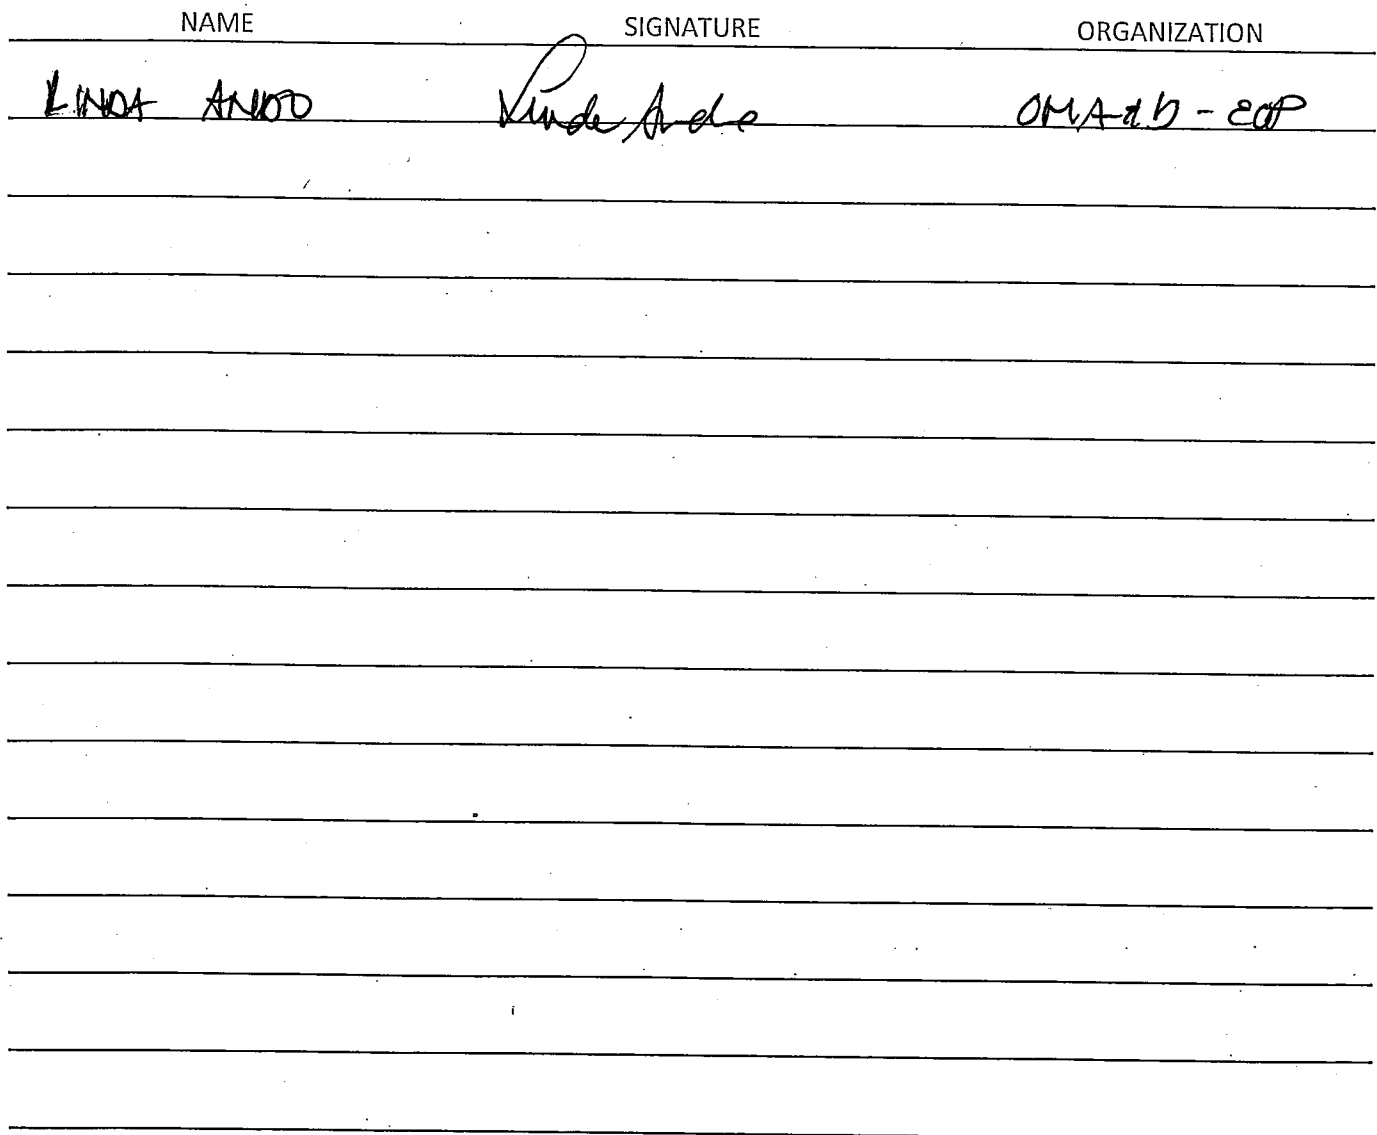 NAME SIGNATURE ORGANIZATION
LINDA ANDO Linda Ando OMA&D - EOP